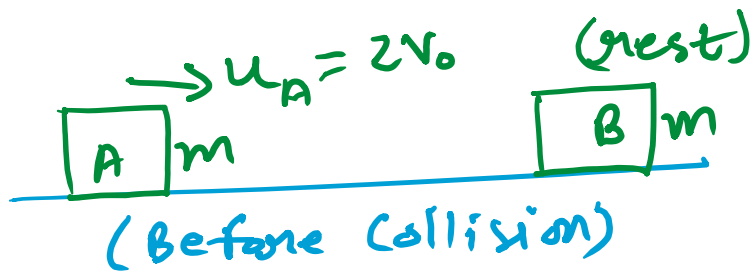 → u_A = 2v₀ (rest)
A m B m
(Before Collision)